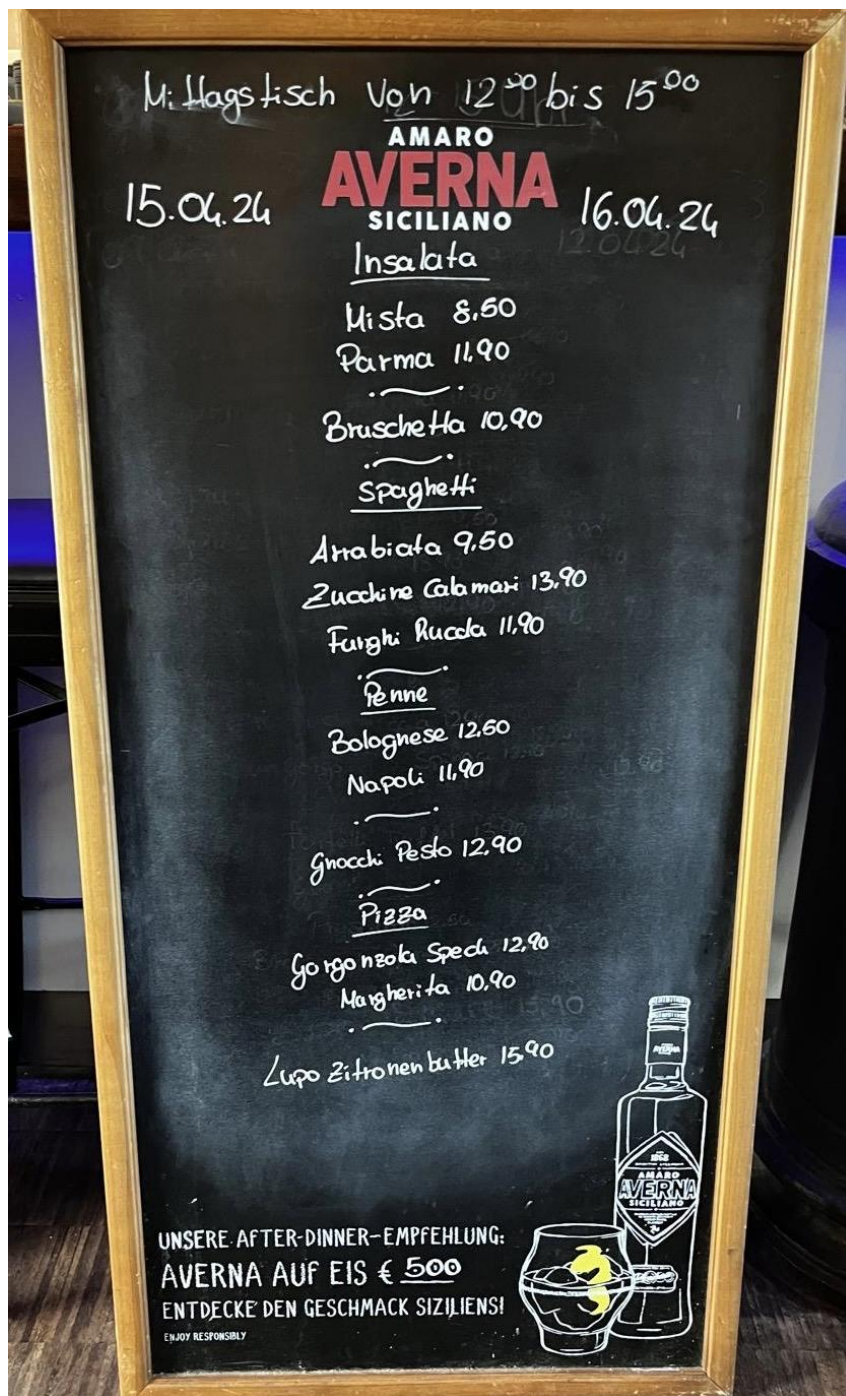 Mittagstisch Von 12⁰⁰ bis 15⁰⁰
AMARO
AVERNA
SICILIANO
15.04.24
16.04.24
Insalata
Mista 8.50
Parma 11.90
Bruschetta 10,90
Spaghetti
Arrabiata 9.50
Zucchine Calamari 13,90
Funghi Rucola 11,90
Penne
Bolognese 12.60
Napoli 11,90
Gnocchi Pesto 12.90
Pizza
Gorgonzola Speck 12,90
Margherita 10.90
Lupo Zitronenbutter 15.90
AVERNA
1868
AMARO
AVERNA
SICILIANO
UNSERE AFTER-DINNER-EMPFEHLUNG:
AVERNA AUF EIS € 500
ENTDECKE DEN GESCHMACK SIZILIENS!
ENJOY RESPONSIBLY